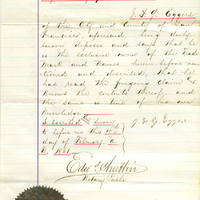 J. F. G. Eggers
of the City and County of San
Francisco aforesaid, being duly
sworn deposes and says that he
is the exclusive owner of the Trade
Mark and Names herein before men-
tioned and described, that he
had read the foregoing claim and
knows the contents thereof, and
the same is true of his own
knowledge.
Subscribed & Sworn
to before me this
day of February A.
D.
J. F. G. Eggers
Notary Public